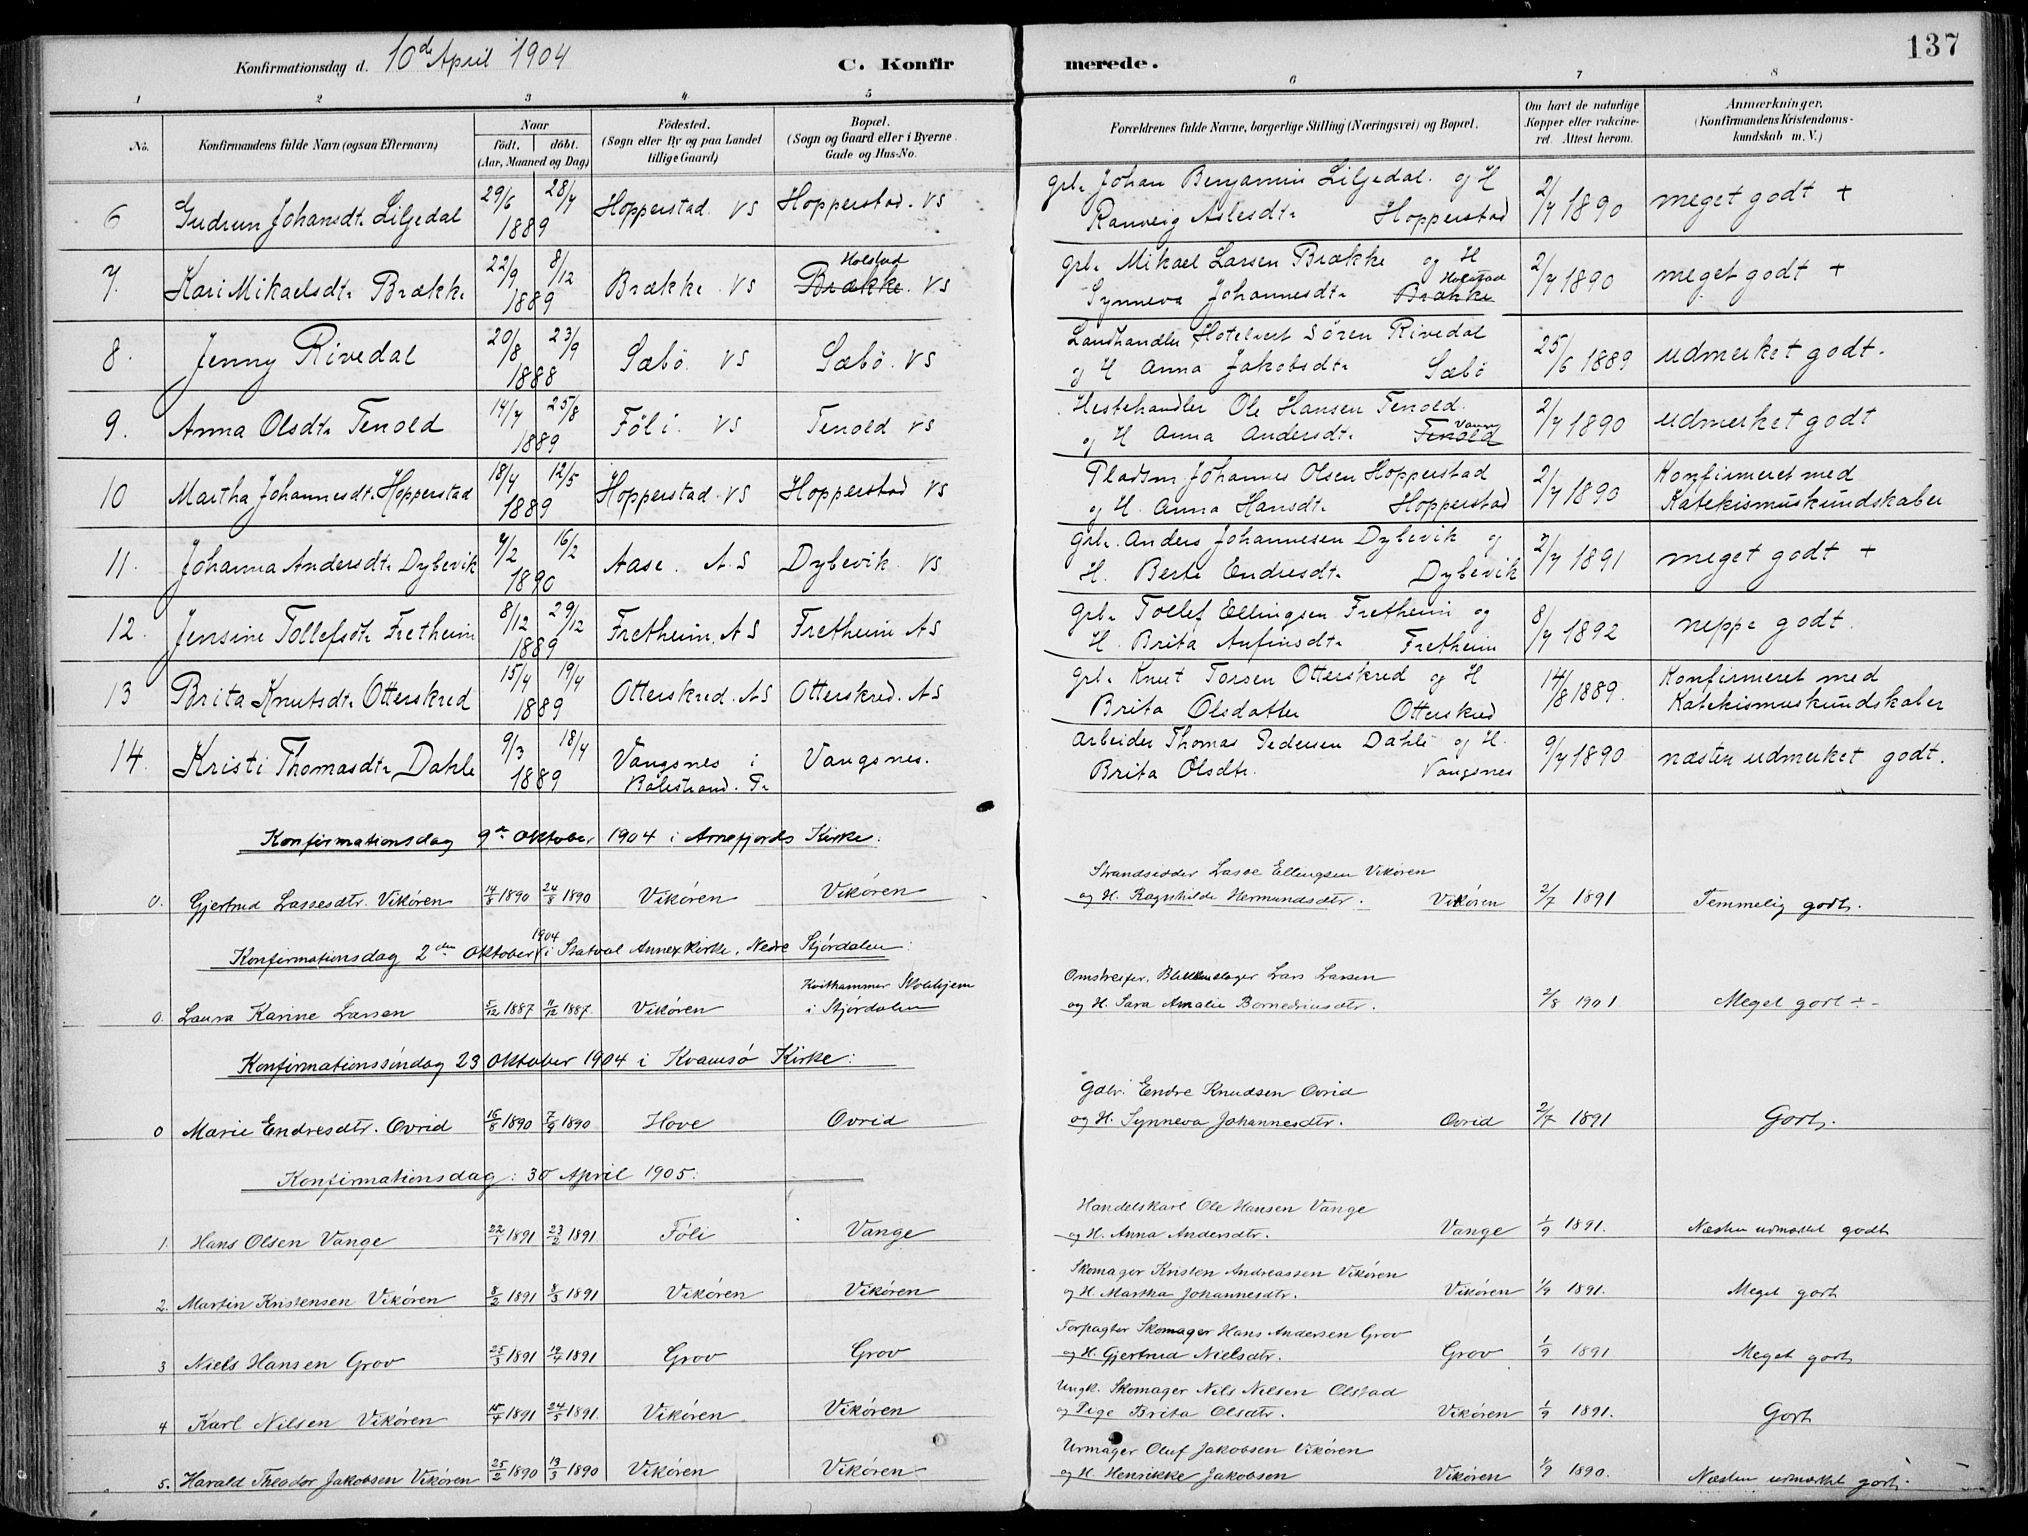 137
Konfirmationsdag d. 10de April 1904 C. Konfir merede.
1 2 3 4 5 6 7 8
No. Konfirmandens fulde Navn (ogsaa Efternavn) Naar født. døbt. (Aar, Maaned og Dag) Fødested. (Sogn eller By og paa Landet tillige Gaard) Bopæl. (Sogn og Gaard eller i Byerne Gade og Hus-No. Forældrenes fulde Navne, borgerlige Stilling (Næringsvei) og Bopæl. Om havt de naturlige Kopper eller vakcineret. Attest herom. Anmærkninger. (Konfirmandens Kristendomskundskab m. V.)
6 Gudrun Johansdtr Liljedal 29/6 28/7 1889 Hopperstad VS Hopperstad. VS Grbr Johan Benjamin Liljedal. og H Ranveig Aslesdtr Hopperstad 2/7 1890 meget godt +
7. Kari Mikaelsdtr Brække 22/9 8/12 1889 Brække VS Holstad Brække. VS Grbr Mikael Larsen Brække og H Synneva Johannesdtr Holstad Brække 2/7 1890 meget godt +
8. Jenny Rivedal 20/8 23/9 1888 Sæbö. VS Sæbö. VS Landhandler, Hotelvert Sören Rivedal og H Anna Jakobsdtr Sæbö 25/6 1889 udmerket godt.
9. Anna Olsdtr Tenold 14/7 25/8 1889 Föli. VS Tenold VS Hestehandler Ole Hansen Tenold. og H Anna Andersdtr Tenold 2/7 1890 udmerket godt
10 Martha Johannesdtr. Hopperstad 18/4 12/5 1889 Hopperstad. VS Hopperstad VS Pladsm Johannes Olsen Hopperstad og H. Anna Hansdtr Hopperstad 2/7 1890 Konfirmeret med Katekismuskundskaber
11. Johanna Andersdtr Dybevik 4/2 16/2 1890 Aase. A.S Dybevik. VS Grbr. Anders Johannesen Dybevik og H. Berte Endresdtr Dybevik 2/7 1891 meget godt +
12. Jensine Tollefsdtr Fretheim 8/12 29/12 1889 Fretheim. AS Fretheim AS Grbr Tollef Ellingsen Fretheim og H. Brita Anfinsdtr Fretheim 8/7 1892 neppe godt.
13 Brita Knutsdtr Otterskred 15/4 19/4 1889 Otterskred. AS Otterskred. AS Grbr Knut Torsen Otterskred og H Brita Olsdatter Otterskred 14/8 1889. Konfirmeret med Katekismuskundskaber
14. Kristi Thomasdtr Dahle 9/3 18/4 1889 Vangsnes i Balestrand. Vangsnes. Arbeider Thomas Pedersen Dahle og H. Brita Olsdtr. Vangsnes 9/7 1890 næsten udmerket godt.
Konfirmationsdag 9de Oktober 1904 i Arnefjords Kirke:
0. Gjertrud Lassesdtr. Vikören 14/8 1890 24/8 1890 Vikören Vikören Strandsidder Lasse Ellingsen Vikören og H. Ragnhilde Hermundsdtr. Vikören 2/7 1891 Temmelig godt.
Konfirmationsdag 2den Oktober 1904 i Statval Annexkirke, Nedre Stjördalen:
0. Laura Karine Larsen 5/12 1887 11/12 1887. Vikören Kvithammer Skolehjem i Stjördalen Omstreifer, Lars Larsen og H. Sara Amalie 2/8 1901. Meget godt ÷
Konfirmationssöndag 23 Oktober 1904 i Kvamsö Kirke:
0 Marie Endresdtr. Ovrid 16/8 1890 7/9 1890 Hove Ovrid Gdbr. Endre Knudsen Ovrid og H. Synneva Johannesdtr. Ovrid 2/7 1891 Godt.
Konfirmationsdag: 30 April 1905:
1. Hans Olsen Vange 22/1 1891 23/2 1891 Föli Vange Handelskarl Ole Hansen Vange og H. Anna Andersdtr. Vange 1/9 1891. Næsten udmærket godt
2. Martin Kristensen Vikören 8/2 1891 8/3 1891 Vikören Vikören Skomager Kristen Andreassen Vikören og H. Martha Johannesdtr. Vikören 1/9 1891. Meget godt
3 Niels Hansen Grov 25/3 1891 19/4 1891 Grov Grov Forpagter Skomager Hans Andersen Grov og H. Gjertrud Nielsdtr. Grov 1/9 1891 Meget godt
4 Karl Nilsen Vikören 15/4 1891 24/5 1891. Vikören Vikören Ungk. Skomager Nils Nilsen Olstad og Pige Brita Olsdtr. Vikören 1/9 1891. Godt
5. Harald Theodor Jakobsen Vikören 25/2 1890 13/3 1890 Vikören Vikören Urmager Oluf Jakobsen Vikören og H. Henrikke Jakobsen Vikören 1/9 1890. Næsten udmærket godt.